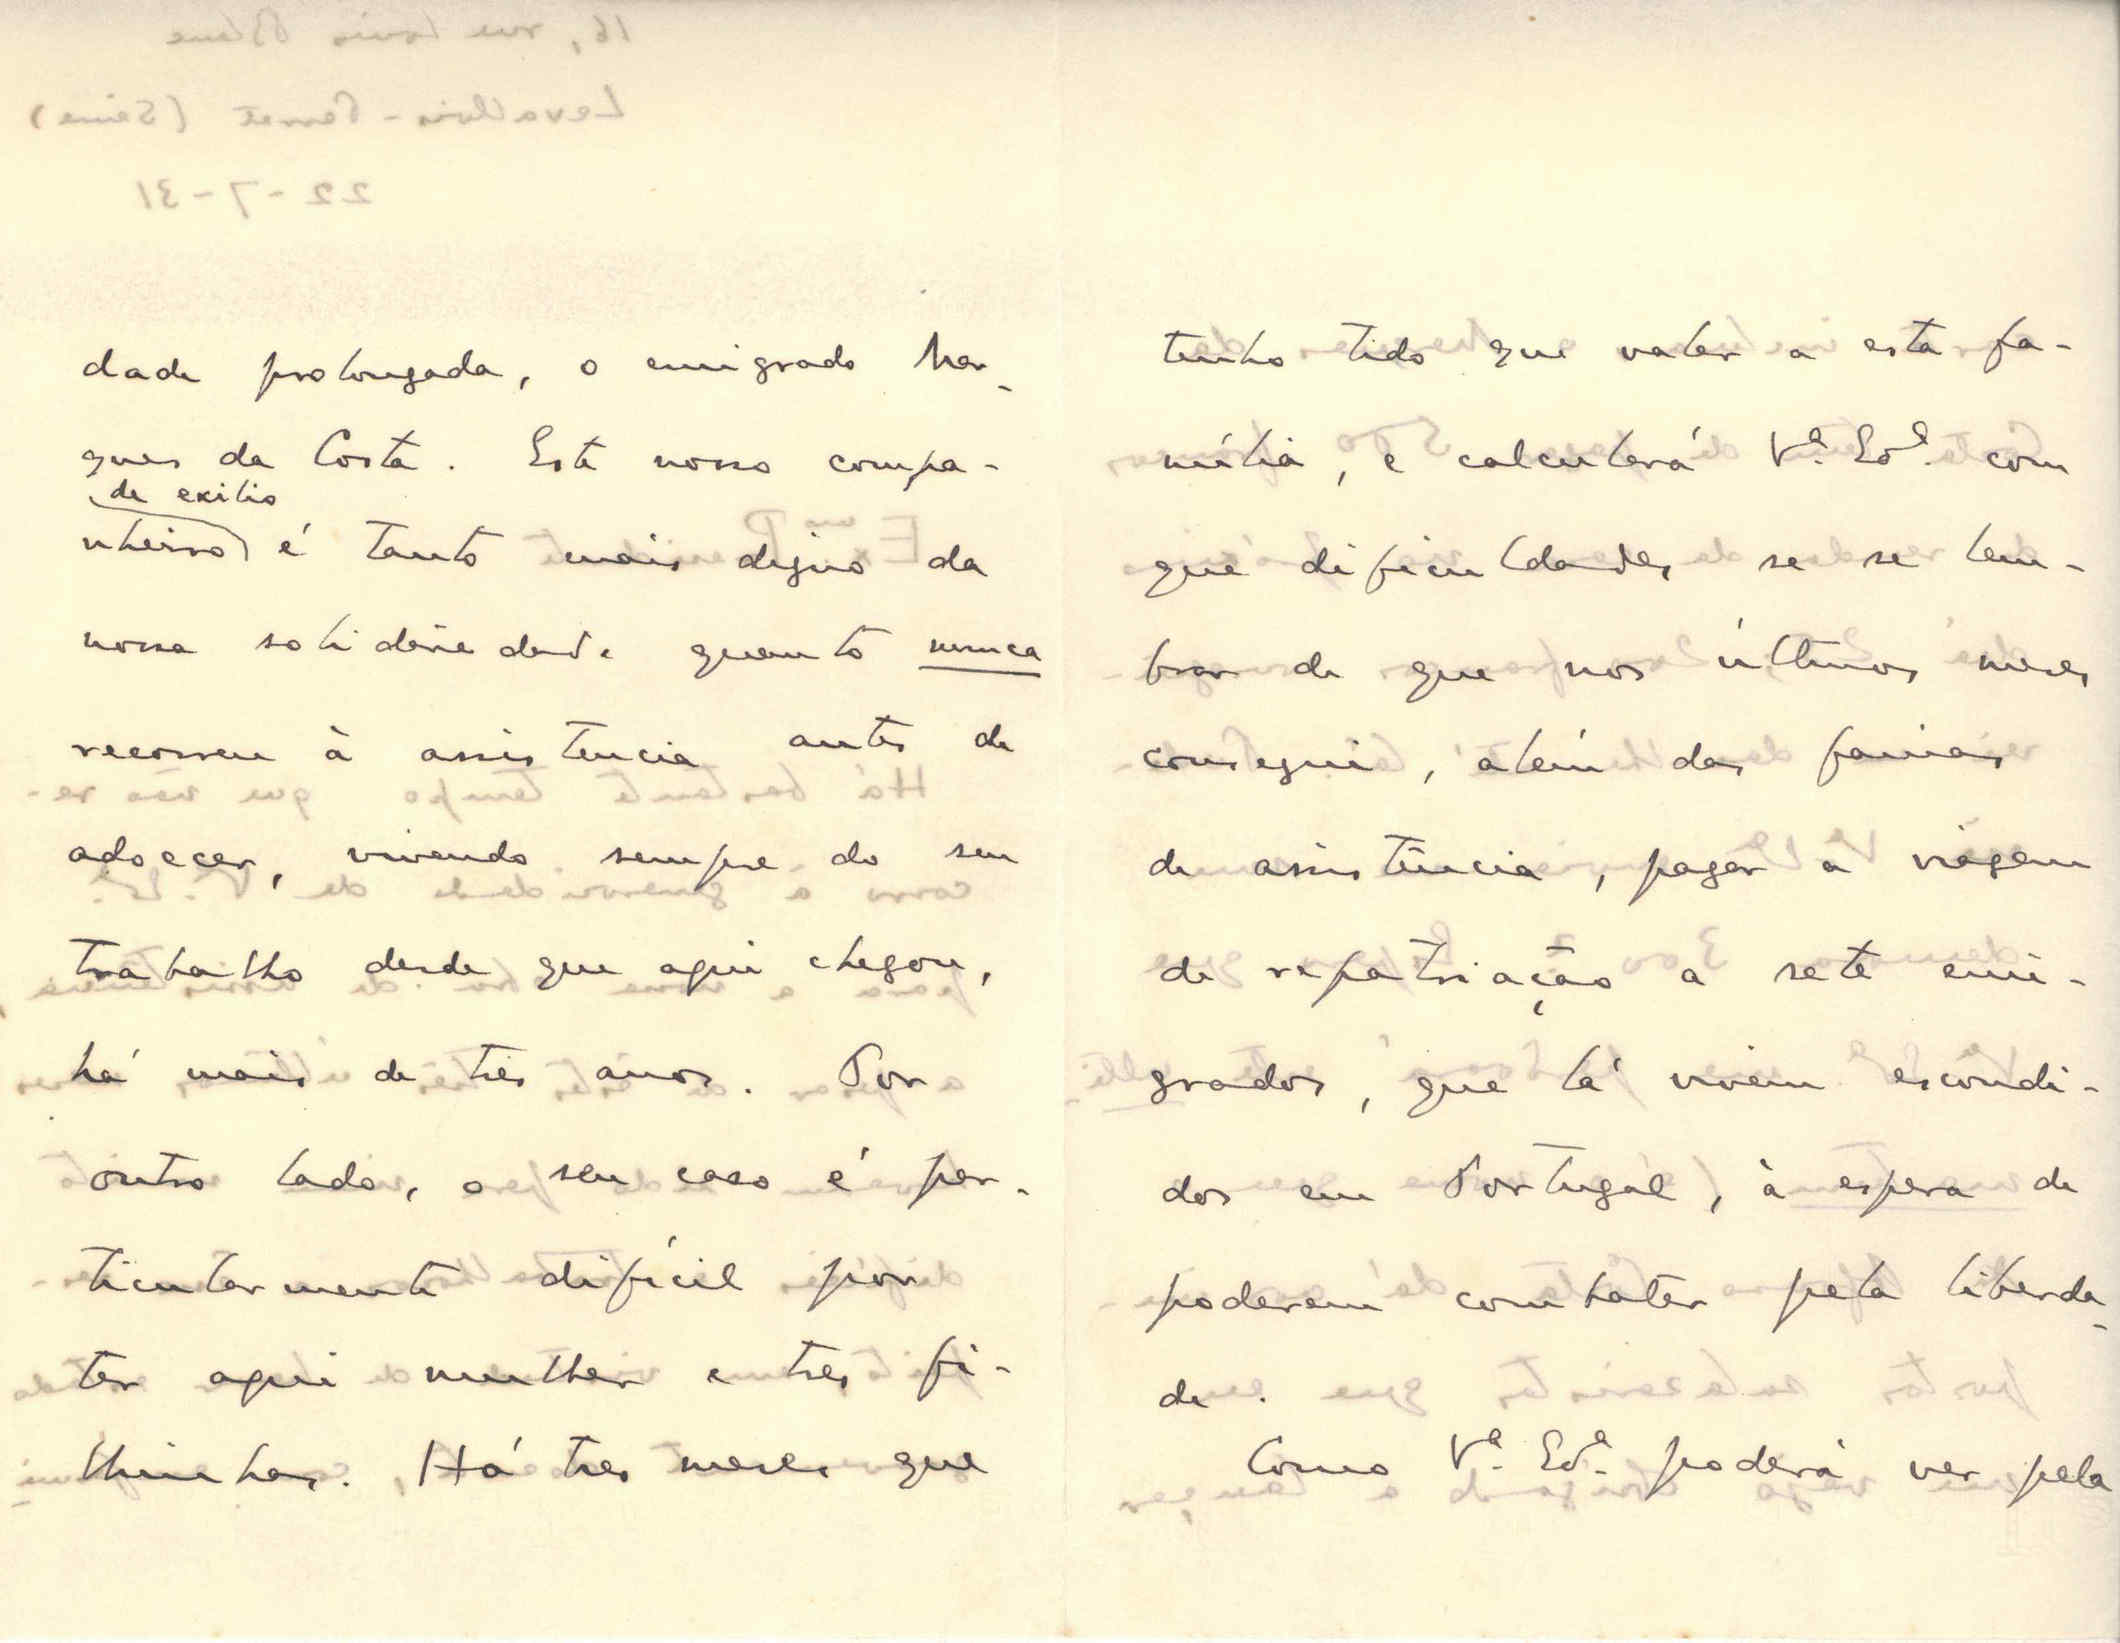 dade prolongada, o emigrado Mar-
ques da Costa. Este nosso compa-
de exilio
nheiro é tanto mais digno da
nossa solidariedade quanto nunca
recorreu à assistencia antes de
adoecer, vivendo sempre do seu
trabalho desde que aqui chegou,
há mais de tres anos. Por
outro lado, o seu caso é par-
ticularmente difícil por
ter aqui mulher e tres fi-
lhinhas. Há tres meses que
tenho tido que valer a esta fa-
mília, e calculará V.ª Ex.ª com
que dificuldades, se se lem-
brar de que nos últimos meses
consegui, além das fainas
de assistência, pagar a viagem
de repatriação a sete emi-
grados, que lá vivem escondi-
dos em Portugal, à espera de
poderem combater pela liberda-
de.
Como V.ª Ex.ª poderá ver pela